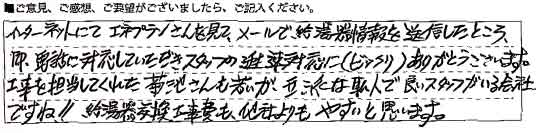 ■ご意見、ご感想、ご要望がございましたら、ご記入ください。
インターネットにて エネプラノさんを見て、メールで給湯器情報を送信したところ、
即、電話に対応していただきスタッフの迅速対応に(ビックリ)ありがとうございます。
工事を担当してくれた 菊池さんも若いが、立派な職人で良いスタッフがいる会社
ですね!! 給湯器交換工事費も、他社よりも やすいと思います。